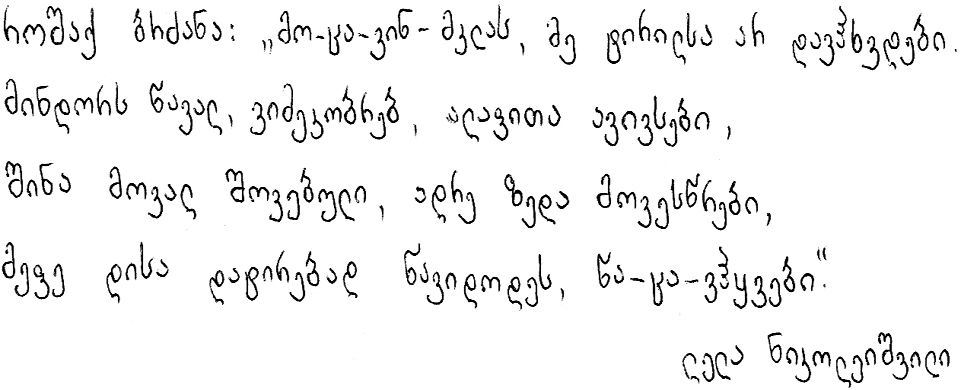 როშაქ ბრძანა: „მო-ცა-ვინ-მკლას, მე ტირილსა არ დავჰხვდები.
მინდორს წავალ, ვიმეკობრებ, ალაფითა ავივსები,
შინა მოვალ შოვებული, ადრე ზედა მოვესწრები,
მეფე დისა დატირებად წავიდოდეს, წა-ცა-ვჰყვები.“
ლელა ნიკოლეიშვილი